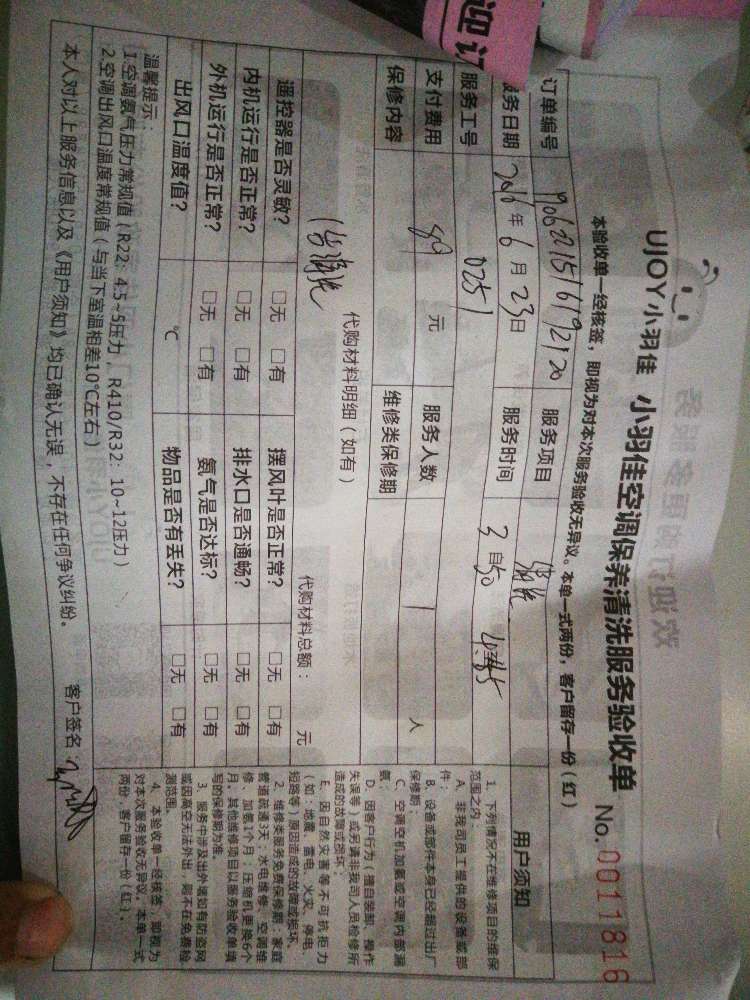 迎订
UJOY小羽佳 小羽佳空调保养清洗服务验收单 No. 0011816
本验收单一经核签，即视为对本次服务验收无异议。本单一式两份，客户留存一份（红）
订单编号 服务项目
服务日期 2016年6月23日 服务时间
服务工号 0251
支付费用 元 服务人数 1 人
保修内容 维修类保修期
代购材料明细（如有） 代购材料总额： 元
遥控器是否灵敏？ □无 □有 摆风叶是否正常？ □无 □有
内机运行是否正常？ □无 □有 排水口是否通畅？ □无 □有
外机运行是否正常？ □无 □有 氨气是否达标？ □无 □有
出风口温度值？ ℃ 物品是否有丢失？ □无 □有
温馨提示：
1.空调氨气压力常规值（R22：4.5~5压力，R410/R32：10~12压力）
2.空调出风口温度常规值（与当下室温相差10℃左右）
本人对以上服务信息以及《用户须知》均已确认无误，不存在任何争议纠纷。 客户签名：
用户须知
1. 下列情况不在维修项目的维保
范围之内：
A. 非我司员工提供的设备或部
件；
B. 设备或部件本身已经超过出厂
保修期；
C. 空调空机加氨或空调内部漏
氨；
D. 因客户行为（擅自装卸、操作
失误等）或另请非我司人员检修所
造成的故障或损坏；
E. 因自然灾害等不可抗拒力
（如：地震、雷电、火灾、停电、
短路等）原因造成的故障或损坏。
2. 维修类服务免费保修期：家庭
管道疏通3天；水电维修、空调维
修、加氨1个月；压缩机更换6个
月。其他维修项目以服务验收单填
写的保修期为准。
3. 服务中涉及出外墙如有防盗网
或因高空无法外出，则不在免费检
测范围。
4. 本验收单一经核签，即视为
对本次服务验收无异议。本单一式
两份，客户留存一份（红）。